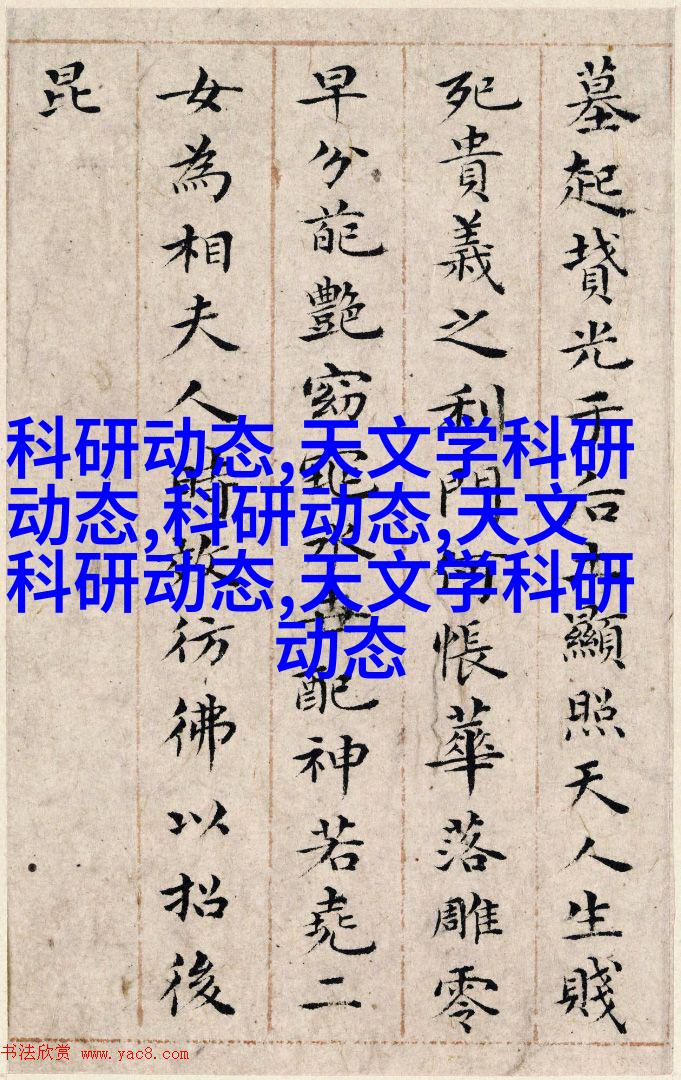 墓起墳光于后土顯照天人生賤
死貴義之利門何悵華落雕零
早分葩艷窈窕永世配神若堯二
女為相夫人時效彷彿以招後
昆
科研动态,天文学科研
动态,科研动态,天文
科研动态,天文学科研
动态
书法欣赏 www.yac8.com